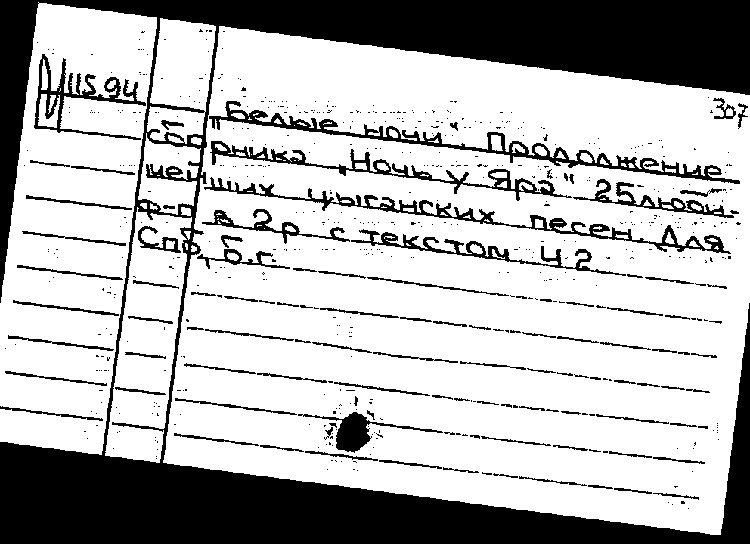 307
115.94
"Белые ночи". Продолжение
сборника "Ночь у Яра" 25 люби-
мейших цыганских песен. Для
ф-п в 2 р с текстом Ч 2
Спб, б.г.